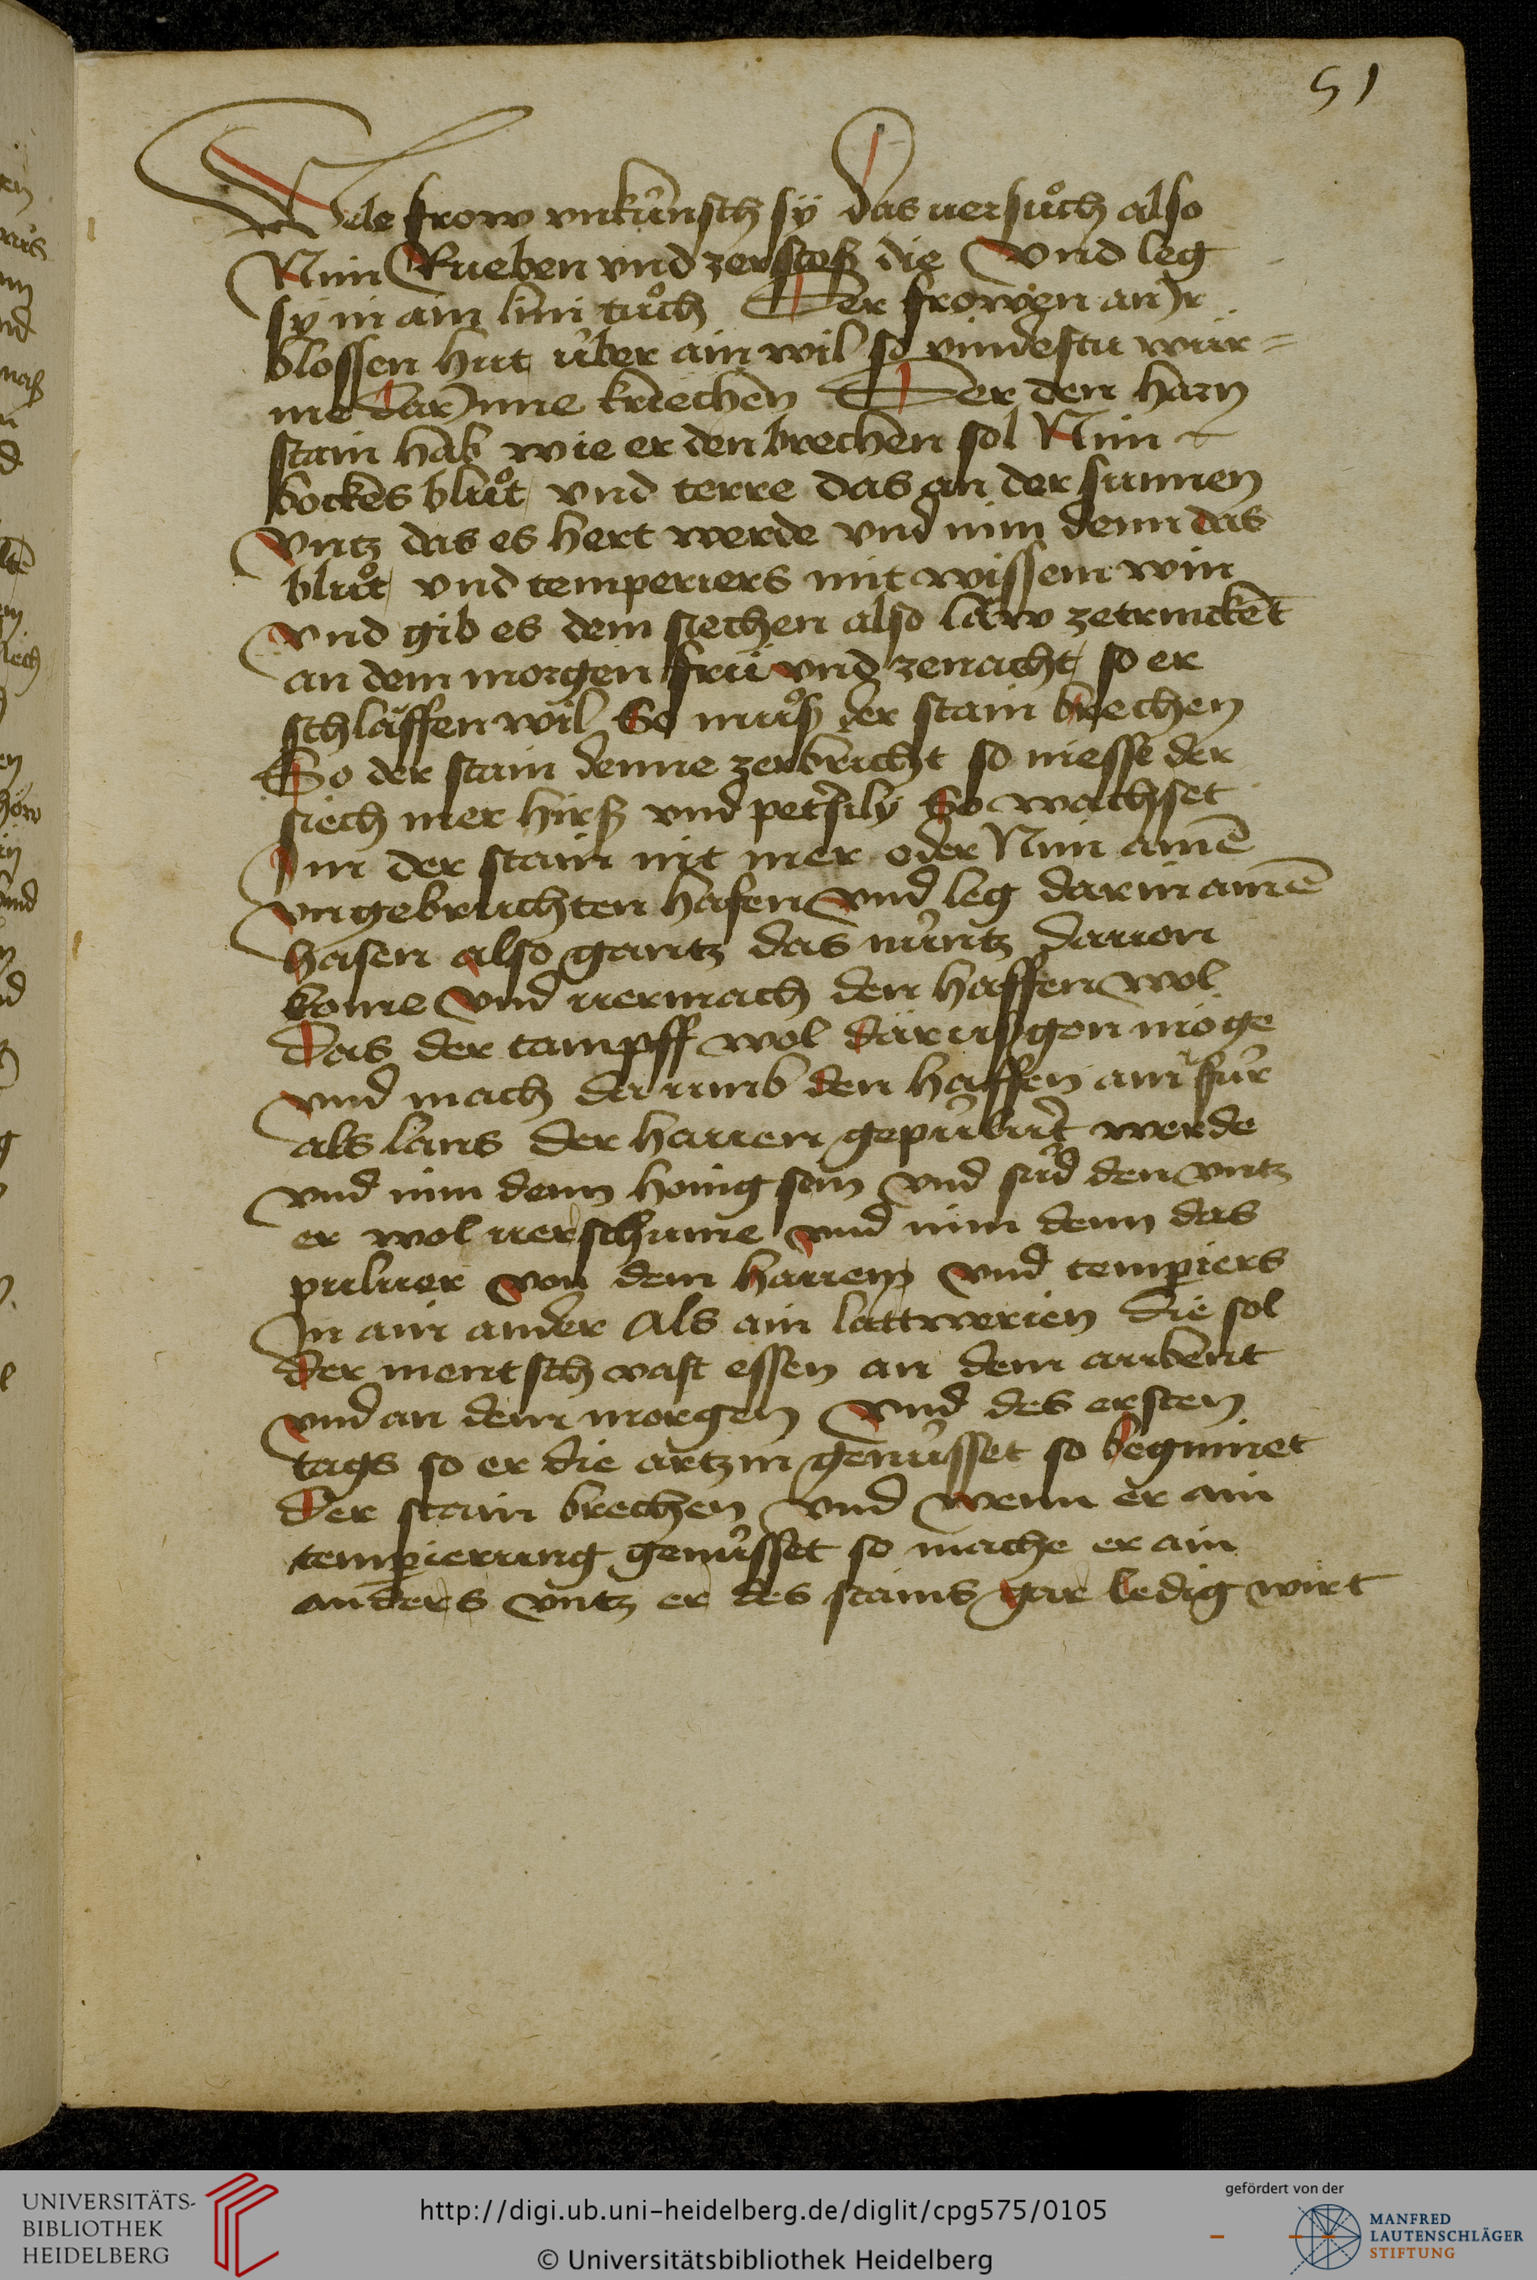 51
Wele frow vnkünsch sy das uersuͦch also
Nim Rueben vnd zerstoß die Vnd leg
sy in ain lini tuͦch Der frowen an Jr
blossen hut über ain wil so vindestu wür=
me dar Jnne kriechen Der den harn
stain hab wie er den brechen sol Nim
bockes bluͦt vnd terre das an der sunnen
Vntz das es hert werde vnd nim denn das
bluͦt vnd temperiers mit wissem win
Vnd gib es dem siechen also läw zetrinckēt
an dem morgen frü vnd zenacht so er
schläffen wil So muͦß der stain brechen
So der stain denne zerbricht so niesse der
siech mer hirß vnd petersily So wachset
Im der stain nit mer oder Nim ainē
vngebruchten hafen Vnd leg darin ainē
hasen also gantz das nüntz daruon
kome Vnd uermach den haffen wol
Das der tampff wol dar uß gon möge
vnd mach da umb den haffen ain für
als lans der hasen gepuluert werde
vnd nim denn honig sein Vnd süd den vntz
er wol uerschume vnd nim denn das
puluer von dem hasen vnd tempiers
In ain ander Als ain lattwerien die sol
der mentsch vast essen an dem aubent
vnd an dem morgen Vnd des ersten
tags so er die artzin genüsset so beginnet
der stain brechen Vnd wenn er ain
tempierung genüsset so mache er ain
anders vntz er des stains gar ledig wirt
UNIVERSITÄTS-
BIBLIOTHEK
HEIDELBERG
http://digi.ub.uni-heidelberg.de/diglit/cpg575/0105
© Universitätsbibliothek Heidelberg
gefördert von der
MANFRED
LAUTENSCHLÄGER
STIFTUNG